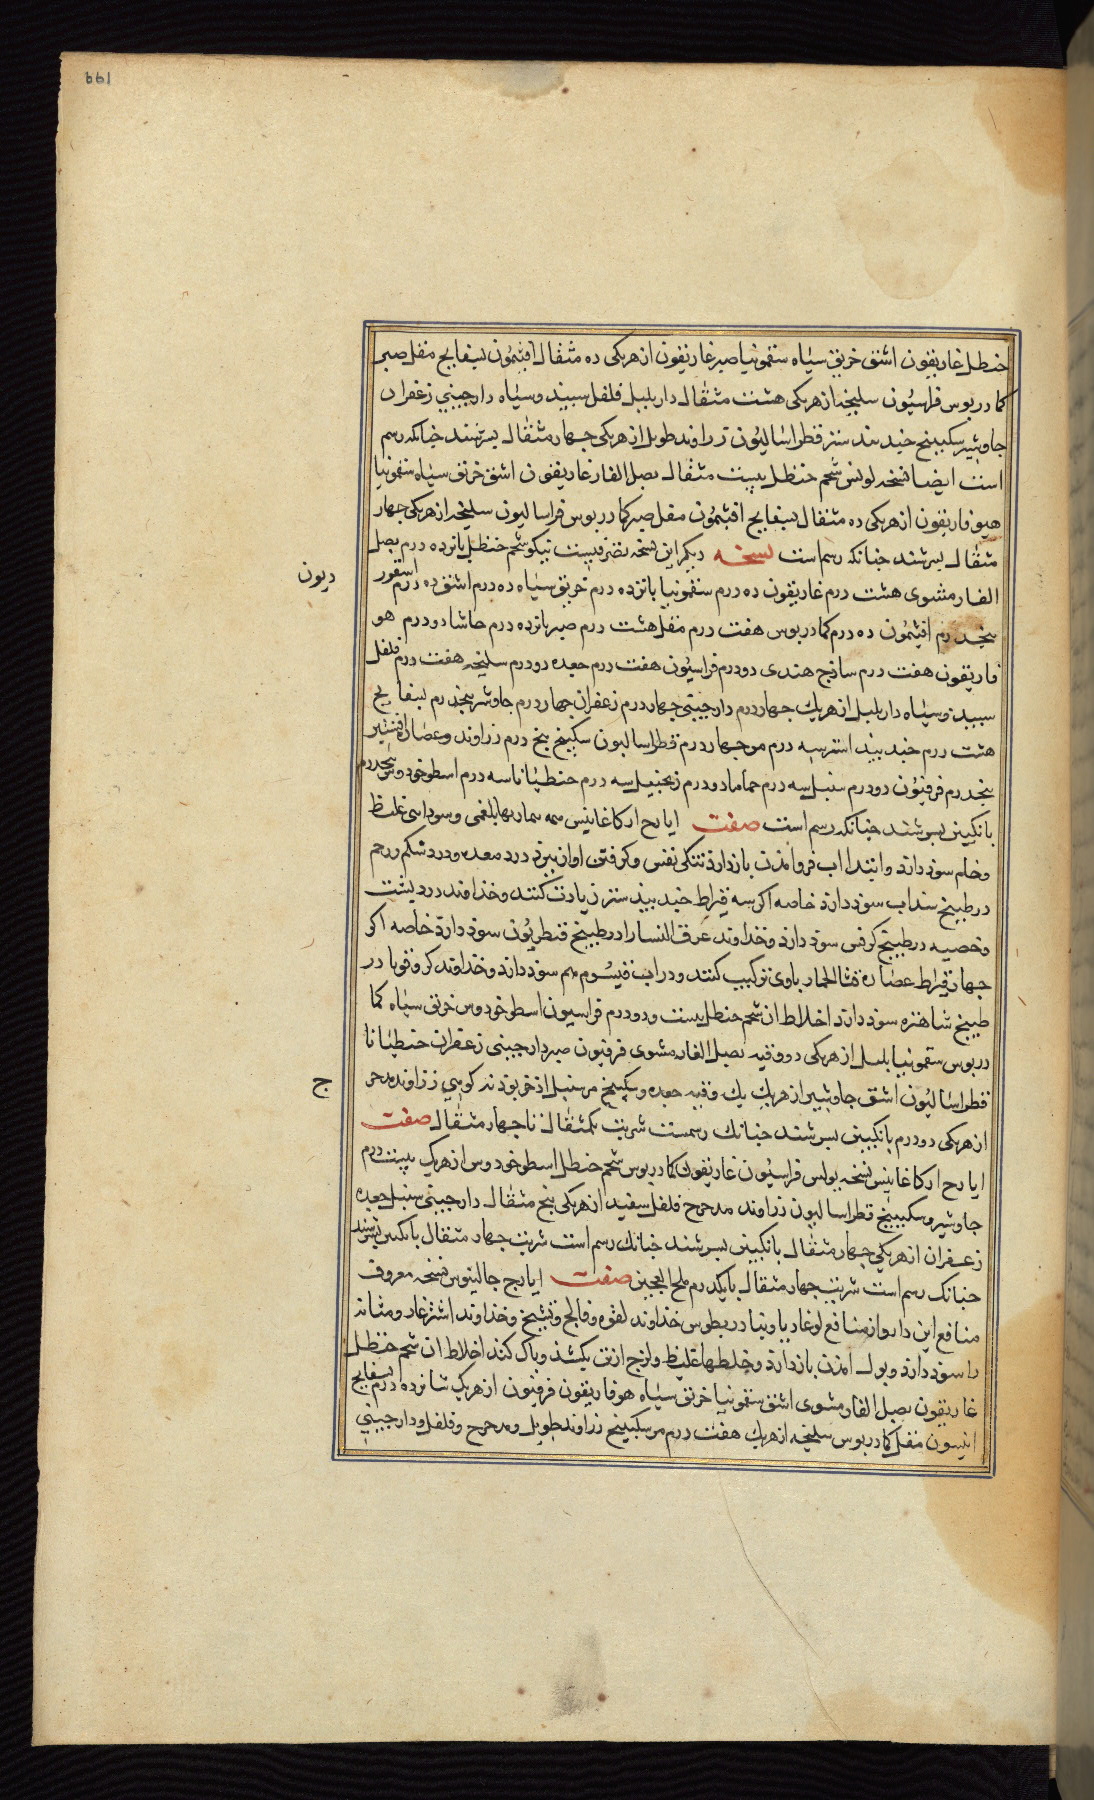 ۱۹۹
حنطل غاریقون اشنق خربق سیاه سقمونیا صبر غاریقون از هریکی ده مثقال افیثمون بسفایج مقل صبر
کمادریوس فراسیون سلیخه از هریکی هشت مثقال داربلبل فلفل سپید و سیاه دارچینی زعفران
جاوشیر سکبینج جندبیدستر قطراسالیون زراوند طویل از هریکی چهار مثقال بسرشند چنانکه رسم
است ایضا نسخه لوکس شحم حنظل بیست مثقال بصل الفار غاریقون اشنق خربق سیاه سقمونیا
هیوفاریقون از هریکی ده مثقال بسفایج افیثمون مقل صبر کمادریوس فراسالیون سلیخه از هریکی چهار
مثقال بسرشند چنانکه رسم است نسخه دیکر این نسخه نیکو شحم حنظل پانزده درم بصل
الفار مشوی هشت درم غاریقون ده درم سقمونیا پانزده درم خربق سیاه ده درم اشنق ده درم اسقور
دیون
پنجدرم افیثمون ده درم کمادریوس هفت درم مقل هشت درم صبر پانزده درم حاشا دو درم هو
فاریقون هفت درم ساذج هندی دو درم فراسیون هفت درم جعده دو درم سلیخه هفت درم فلفل
سپید و سیاه داربلبل از هریک چهار درم دارچینی چهار درم زعفران چهار درم جاوشیر پنجدرم بسفایج
هشت درم جندبیدستر سه درم مر چهار درم قطراسالیون سکبینج پنج درم زراوند و عصاره افسنتین
پنجدرم فرفیون دو درم سنبل سه درم حماما دو درم زنجبیل سه درم جنطیانا سه درم اسطوخودوس پنجدرم
بانکبین بسرشند چنانکه رسم است صفت ایارج ارکاغانیس همه بیماریها بلغمی و سوداسی غلیظ
و خام سوذ دارذ و ابتدا اب فروامذن بازدارذ تنکی نفس و کرفتن اواز ببرذ درد معده و درد شکم و رحم
در طبیخ سنداب سوذ دارذ خاصه اکر سه قیراط جندبیدستر زیادت کنند و خذاوند درد پشت
و خصیه در طبیخ کرفس سوذ دارذ و خذاوند عرق النسا را در طبیخ قنطریون سوذ دارذ خاصه اکر
چهار قیراط عصاره قثا الحمار باوی ترکیب کنند و در اب قیسوم هم سوذ دارذ و خذاوند کر و قوبا در
طبیخ شاهتره سوذ دارذ اخلاط ان شحم حنظل بیست و دو درم فراسیون اسطوخودوس خربق سیاه کما
دریوس سقمونیا بلبل از هریکی دو وقیه بصل الفار مشوی فرفیون صبر دارچینی زعفران جنطیانا
قطراسالیون اشنق جاوشیر از هریک یک وقیه جعده و سکبینج مر سنبل اذخر بودنه کوهی زراوند مدحر
ج
از هریکی دو درم بانکبین بسرشند چنانک رسمست شربت یکمثقال تا چهار مثقال صفت
ایارج ارکاغانیس نسخه بولس فراسیون غاریقون کمادریوس شحم حنظل اسطوخودوس از هریک بیست درم
جاوشیر و سکبینج قطراسالیون زراوند مدحرج فلفل سفید از هریکی پنج مثقال دارچینی سنبل جعده
زعفران از هریکی چهار مثقال بانکبین بسرشند چنانک رسم است شربت چهار مثقال بانکبین بسرشند
چنانک رسم است شربت چهار مثقال با یکدرم ملح العجین صفت ایارج جالینوس نسخه معروف
منافع این دارو از منافع لوغادیا و تیادریطوس خذاوند لقوه و فالج و تشنج و خذاوند استرغار و مثانه
را سوذ دارذ و بول امذن بازدارذ و خلطها غلیظ و لزج از تن بکشذ و پاک کند اخلاط ان شحم حنظل
غاریقون بصل الفار مشوی اشنق سقمونیا خربق سیاه هوفاریقون فرفیون از هریک شانزده درم بسفایج
انیسون مقل کمادریوس سلیخه از هریک هفت درم مر سکبینج زراوند طویل و مدحرج و فلفل و دارچینی